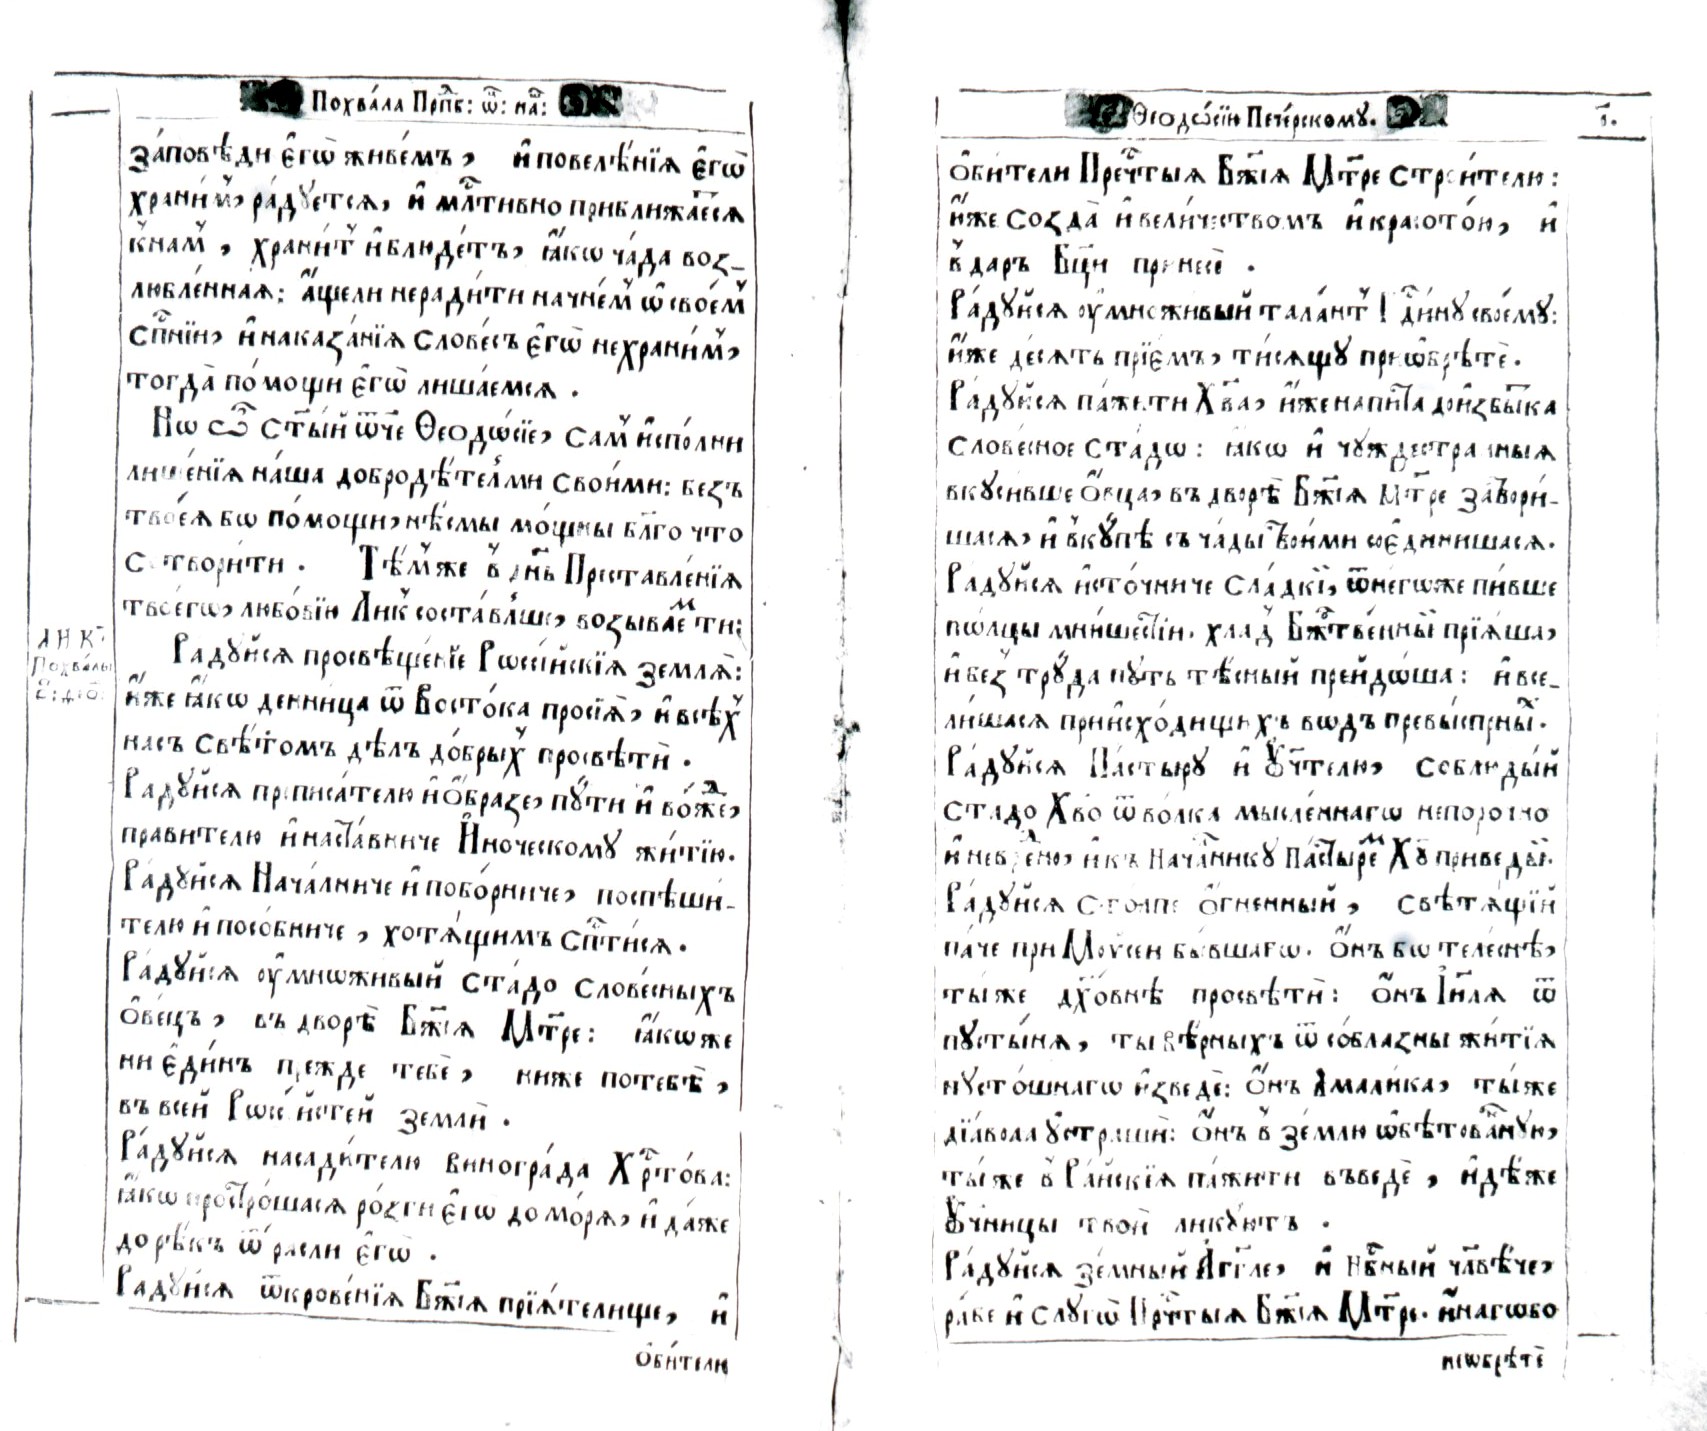 Похва́ла Прп҃б: ѿ: на҃:
за́повѣди є҆гѡ̀ живе́мъ, и҆ повелѣ́нїѧ є҆гѡ̀
храни́м̾, ра́дꙋетсѧ, и҆ мл҃тивно приближа́есѧ
к̾нам̾, храни́т̾ и҆ блюде́тъ, ꙗ҆́кѡ ча́да воз-
лю́бле́ннаѧ: а҆́щели неради́ти начне́м̾ ѡ҆ свое́м̾
сп҃нїи, и҆ наказа́нїѧ слове́съ є҆гѡ̀ нехрани́м̾,
тогда̀ по́мощи є҆гѡ̀ лиша́емсѧ.
Но ѽ ст҃ы́й ѿч҃е Ѳеодѡ́сїе, сам̾ и҆спо́лни
лише́нїѧ на́ша добродѣ́телми свои́ми: без̾
твоеѧ̀ бѡ по́мощи, нѣ́смы мо́щны бл҃го что
сотвори́ти. Тѣ́м̾же в̾ дн҃ь Преставле́нїѧ
твоегѡ̀, любо́вїю Лик̾ соста́влше, возыва́емъ ти:
Ра́дꙋйсѧ просвѣще́нїе Рѡссі́йскїѧ землѧ̀:
и҆́же ꙗ҆́кѡ денни́ца ѿ Восто́ка просїѧ̀, и҆ всѣ́х̾
насъ свѣ́томъ дѣ́лъ до́брых̾ просвѣтѝ.
Ра́дꙋйсѧ преписа́телю и҆ о҆́бразе, пꙋти̾ и҆ во́жде,
прави́телю и҆ наста́вниче И҆́ноческомꙋ жи́тїю.
Ра́дꙋйсѧ Нача́лниче и҆ побо́рниче, поспѣши́-
телю и҆ посо́бниче, хотѧ́щимъ сп҃ти́сѧ.
Ра́дꙋйсѧ ᲂу҆мно́живый ста́до слове́сныхъ
о҆ве́цъ, въ дворѣ̀ Бж҃їѧ Мт҃ре: ꙗ҆́коже
ни є҆ди́нъ пре́жде тебѐ, ниже потебѣ̀,
въ всей Рѡссі́йстей землѝ.
Ра́дꙋйсѧ насади́телю виногра́да Хр҃то́ва:
ꙗ҆́кѡ простро́шасѧ ро́зги є҆гѡ̀ до мо́рѧ, и҆ да́же
до рѣ́къ ѿ́расли є҆гѡ̀.
Ра́дꙋйсѧ ѿкрове́нїѧ Бж҃їѧ прїѧ́телище, и҆
о҆би́тели
ЛИК҃
Похвалы
Ѳеодѡ́сїю Пече́рскомꙋ.
о҆би́тели Преч҃тыѧ Бж҃їѧ Мт҃ре строи́телю:
и҆́же созда̀ и҆ вели́чеством̾ и҆ красото́ю, и҆
в̾ даръ Бц҃ѝ принесѐ.
Ра́дꙋйсѧ ᲂу҆мно́живый тала́нт̾ Гд҃и́нꙋ своемꙋ̀:
и҆́же де́сѧть прїе́мъ, ти́сѧщꙋ приѡбрѣ́те.
Ра́дꙋйсѧ па́жити Хв҃а, и҆́же напита̀ до и҆збы́тка
слове́сное ста́дѡ: ꙗ҆́кѡ и҆ чꙋждестра́нныѧ
вкꙋси́вше о҆́вца, въ дворѣ̀ Бж҃їѧ Мт҃ре затвори́-
шасѧ, и҆ вкꙋ́пѣ съ ча́ды твои́ми соє҆дини́шасѧ.
Ра́дꙋйсѧ и҆сто́чниче сла́дкїй, ѿнегѡ́же пи́вше
пѡ́лцы мни́шестїи, хлад̾ Бж҃твенный прїѧ́ша,
и҆ без̾ трꙋда̀ пꙋть тѣ́сный прейдо́ша: и҆ все-
ли́шасѧ при и҆схо́дищихъ вѡдъ превы́спрны́х.
Ра́дꙋйсѧ Па́стырꙋ и҆ Оу҆чт҃елю, соблюды́й
ста́до Хв҃о ѿ во́лка мы́сленнагѡ непоро́чно
и҆ невре́дно, и҆ къ Нача́лникꙋ Па́стырем Хꙋ҃ приведы́й.
Ра́дꙋйсѧ сто́лпе о҆́гненный, свѣтѧ́щїй
па́че при Моѷсеи бы́вшагѡ. О҆́нъ бѡ теле́снѣ,
ты́же дꙋхо́внѣ просвѣтѝ: О҆́нъ І҆и҃лѧ ѿ
пꙋсты́нѧ, ты вѣ́рныхъ ѿ со́блазны жи́тїѧ
пꙋсто́шнагѡ и҆зведѐ: О҆́нъ А҆мали́ка, ты́же
дїа́вола ᲂу҆страшѝ: О҆́нъ в̾ зе́млю ѡ҆бѣтова́ннꙋю,
ты́же в̾ Ра́йскїѧ па́жити въведѐ, и҆дѣ́же
Оу҆чн҃ицы твоѝ ликꙋ́ютъ.
Ра́дꙋйсѧ зе́мный А҆́гг҃ле, и҆ нб҃ный чл҃вѣче,
ра́бе и҆ слꙋго̀ Прч҃тыѧ Бж҃їѧ Мт҃ре. и҆́нагѡбо
неѡбрѣ́те